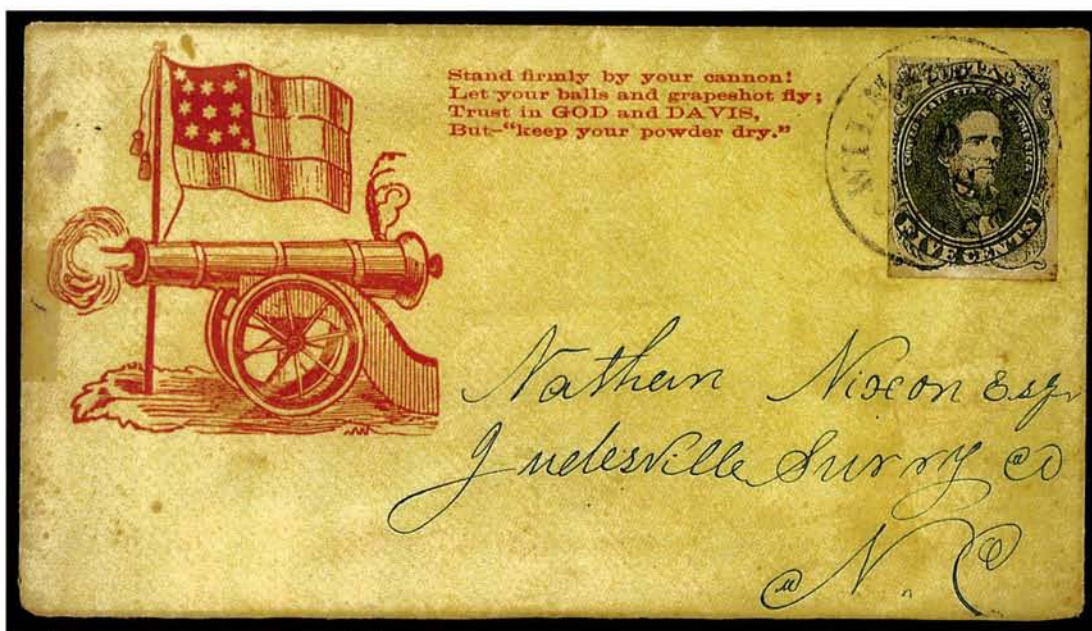 Stand firmly by your cannon!
Let your balls and grapeshot fly;
Trust in GOD and DAVIS,
But-"keep your powder dry."
POSTAGE
CONFEDERATE STATES OF AMERICA
FIVE CENTS
WILM
Nathan Nixon Esqr
Judesville Surry Co
N. C